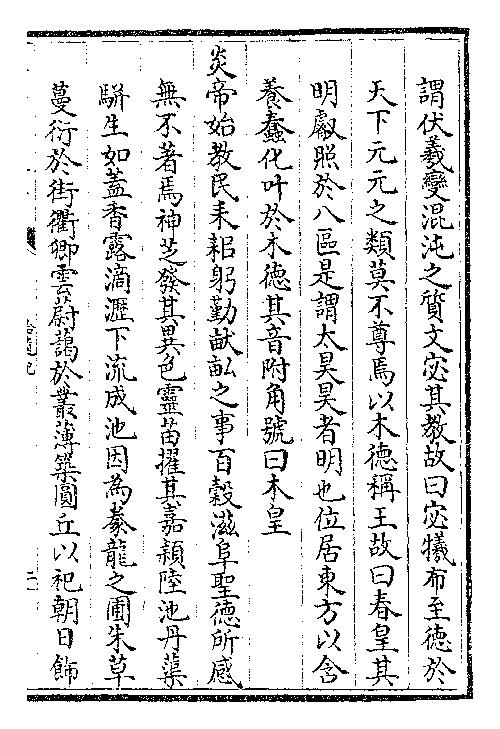 謂伏羲變混沌之質文宓其教故曰宓犧布至德於
天下元元之類莫不尊焉以木德稱王故曰春皇其
明叡照於八區是謂太昊昊者明也位居東方以含
養蠢化叶於木德其音附角號曰木皇
炎帝始教民耒耜躬勤畎畝之事百穀滋阜聖德所感
無不著焉神芝發其異色靈苗擢其嘉穎陸池丹蕖
駢生如蓋香露滴瀝下流成池因為豢龍之圃朱草
蔓衍於街衢卿雲蔚藹於叢薄築圓丘以祀朝日飾